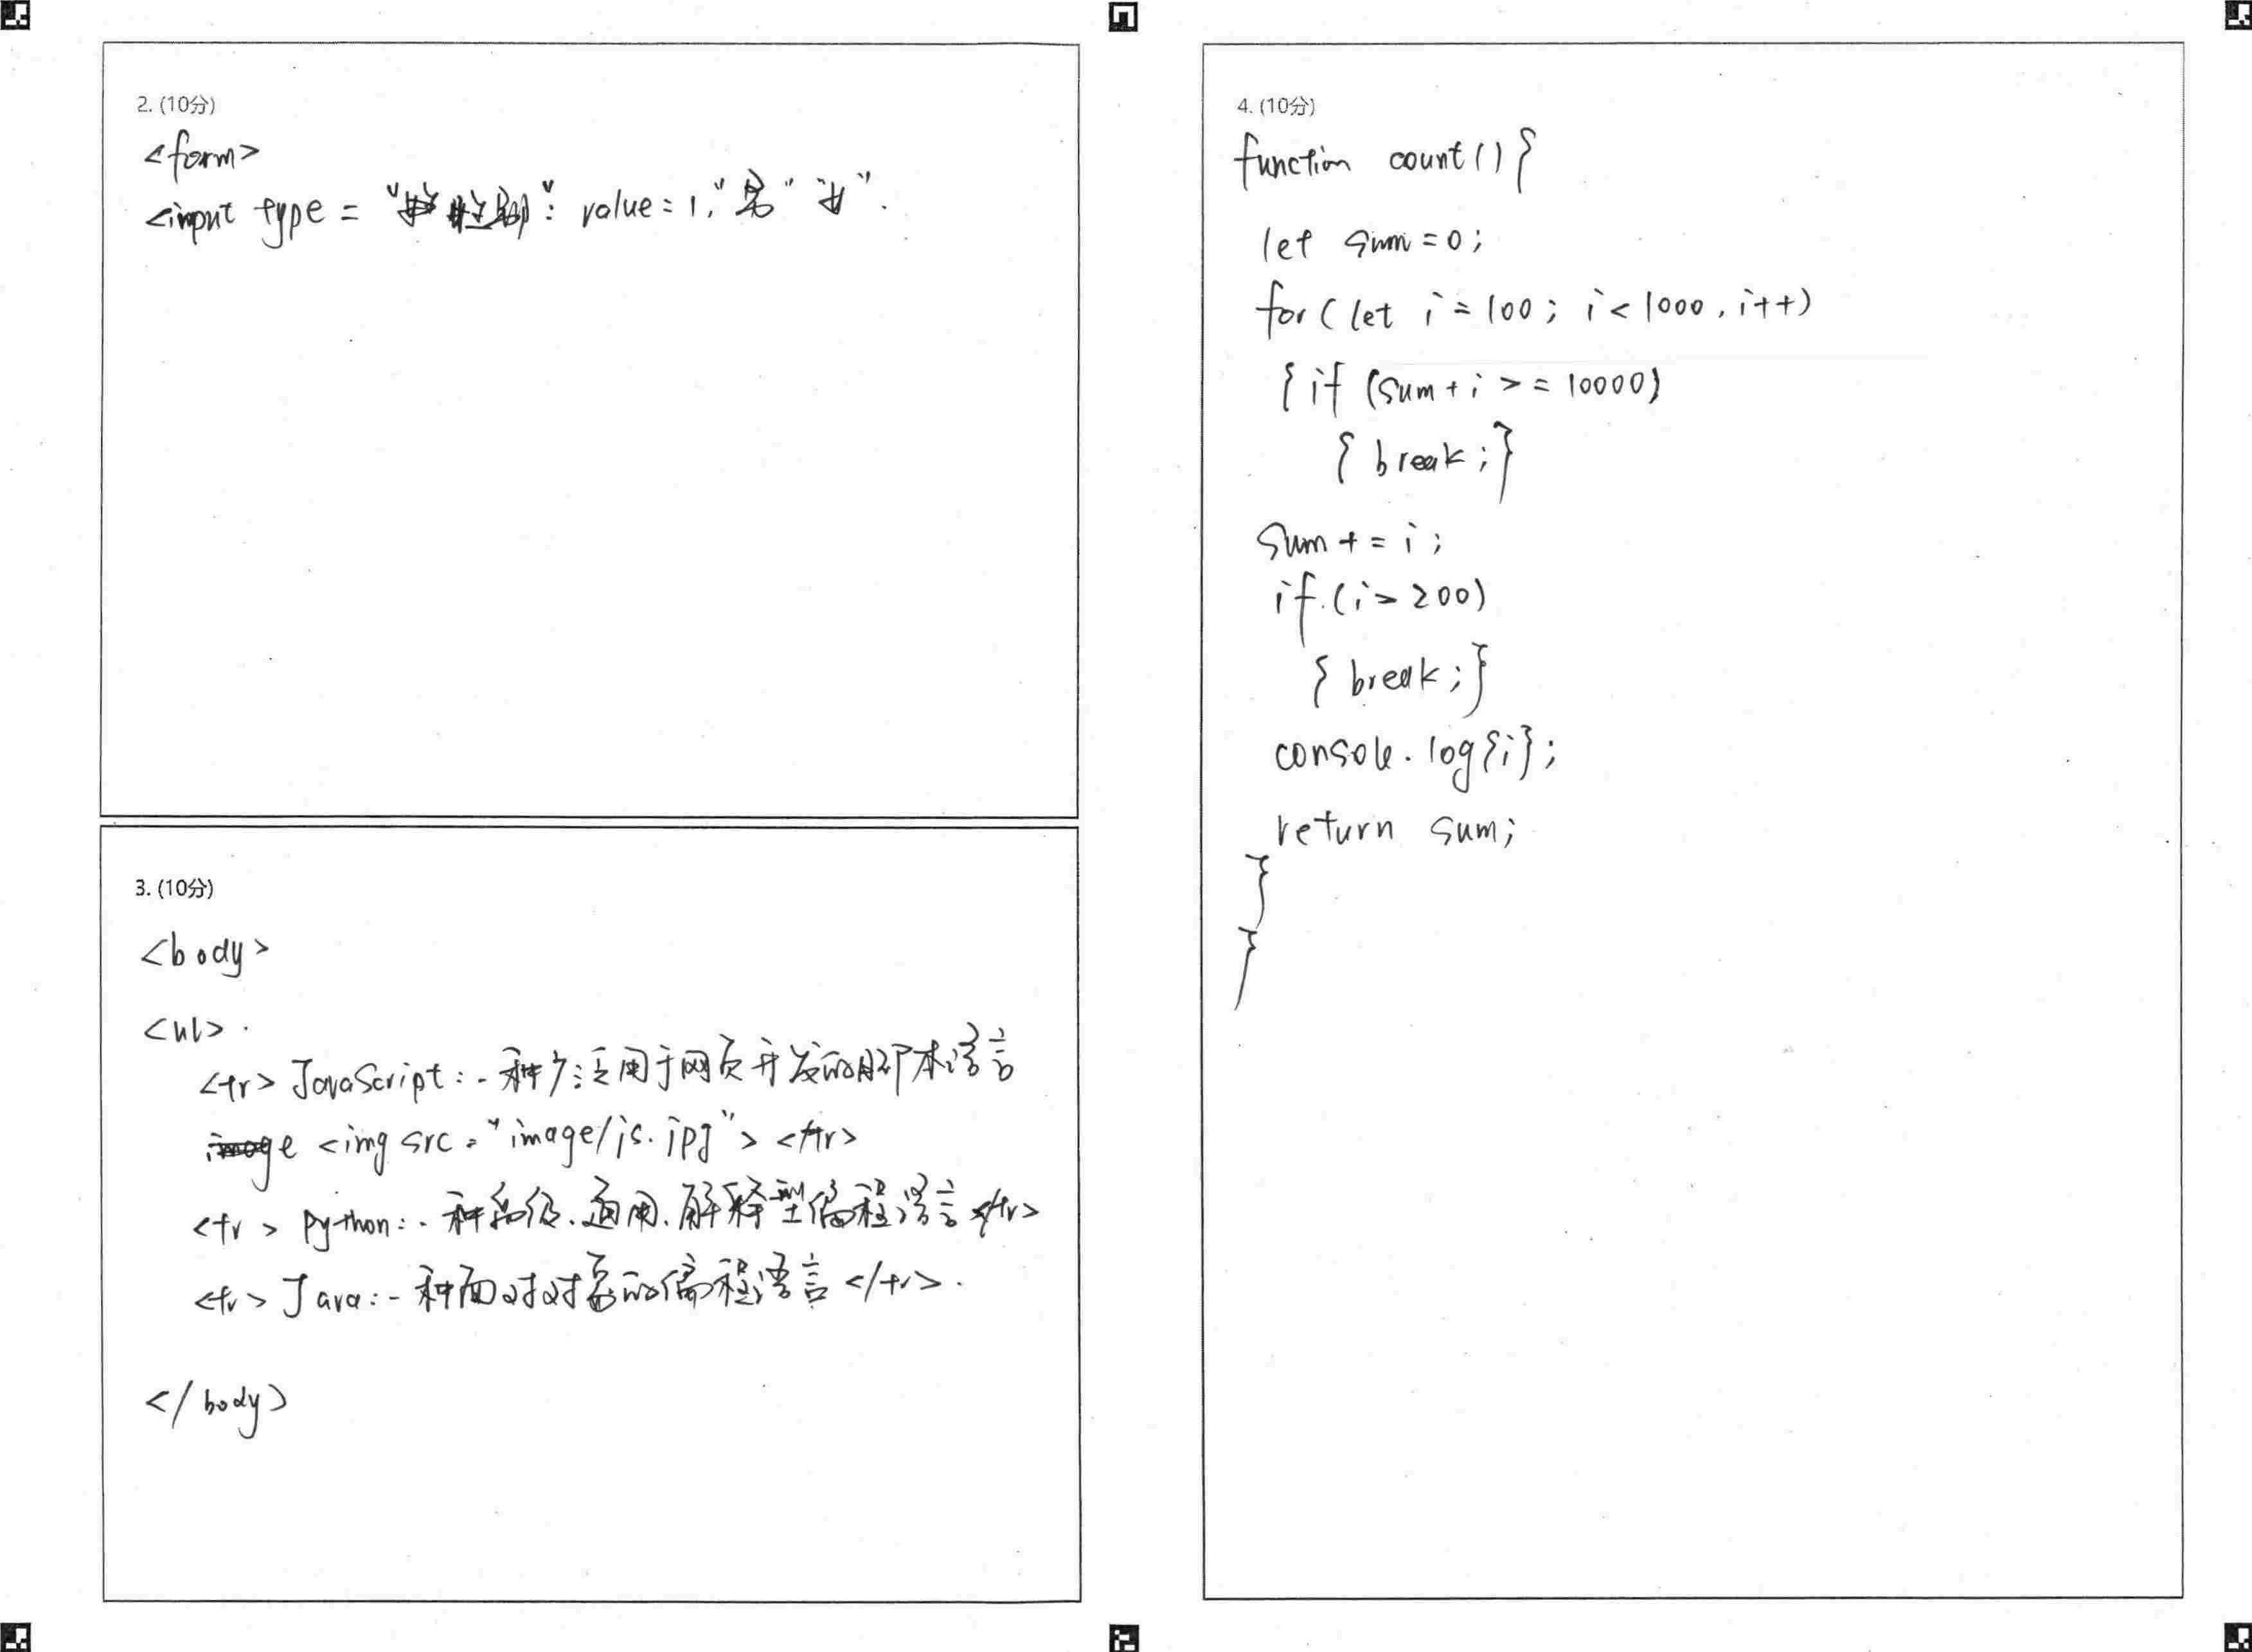 2. (10分)
<form>
<input type = " ": value = 1, "男" "女".
3. (10分)
<body>
<ul>.
<tr> JavaScript: 一种广泛用于网页开发的脚本语言
<img src = "image/js.jpg"> </tr>
<tr> python: 一种高级、通用、解释型编程语言 </tr>
<tr> Java: 一种面对对象的编程语言 </tr>.
</body>
4. (10分)
function count(){
let sum=0;
for(let i=100; i<1000, i++)
{if (sum+i >= 10000)
{ break;}
sum += i;
if.(i>200)
{ break;}
console.log{i};
return sum;
}
}